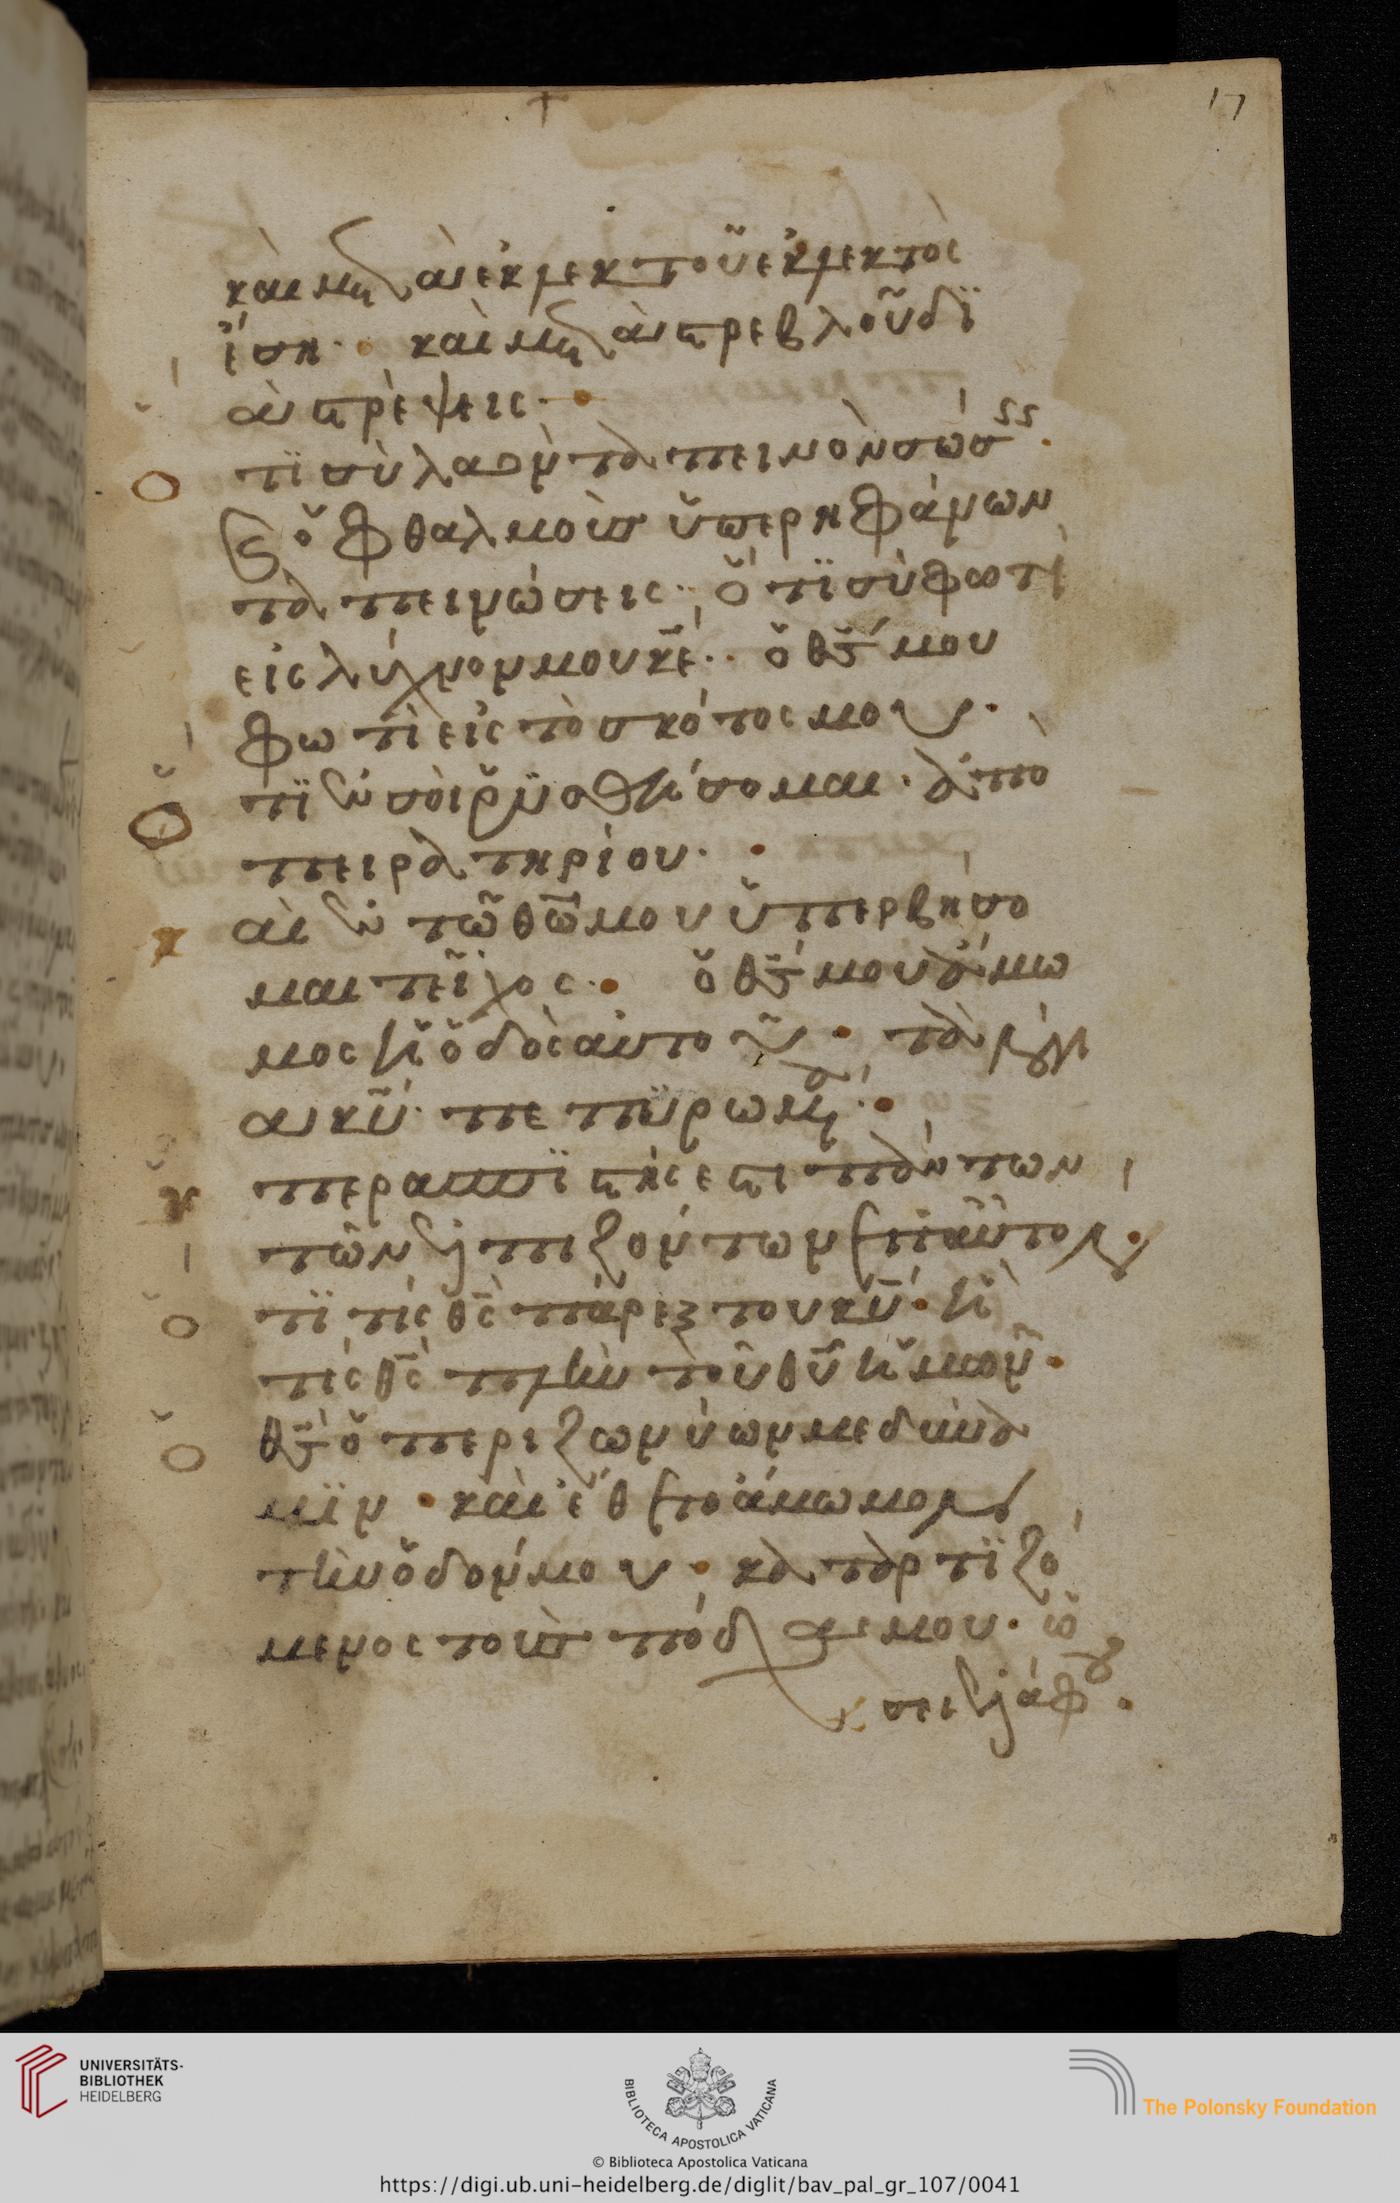 17
καὶ μετὰ ἐκλεκτοῦ ἐκλεκτὸς
ἔση· καὶ μετὰ στρεβλοῦ δϊ
αστρέψεις·
τϊ σὺ λαὸν ταπεινὸν σώσ
ὀφθαλμοὺς ὑπερηφάνων
ταπεινώσεις· ὅτϊ σὺ φωτι
εῖς λύχνον μου κε· ὁ θς μου
φωτιεῖς τὸ σκότος μου·
τϊ ἐν σοὶ ρϋσθήσομαι· ἀπὸ
πειρατηρίου·
αὶ ἐν τῶ θω μου ὑπερβήσο
μαι τεῖχος· ὁ θς μου ἄμω
μος ἡ ὁδὸς αὐτοῦ· τὰ λόγι
α κυ· πεπϋρωμένα·
περασπϊστής ἐστι πάντων
τῶν ἐλπιζόντων ἐπ αὐτόν·
τϊ τίς θς πάρεξ τοῦ κυ· ἢ
τίς θς πλὴν τοῦ θυ ἡμῶν·
θς ὁ περιζωννύων με δύνα
μϊν· καὶ ἔθετο ἄμωμον
τὴν ὁδόν μου· καταρτϊζό
μενος τοὺς πόδας μου· ὡ
σεὶ ἐλάφου·
UNIVERSITÄTS-
BIBLIOTHEK
HEIDELBERG
BIBLIOTECA APOSTOLICA VATICANA
The Polonsky Foundation
© Biblioteca Apostolica Vaticana
https://digi.ub.uni-heidelberg.de/diglit/bav_pal_gr_107/0041